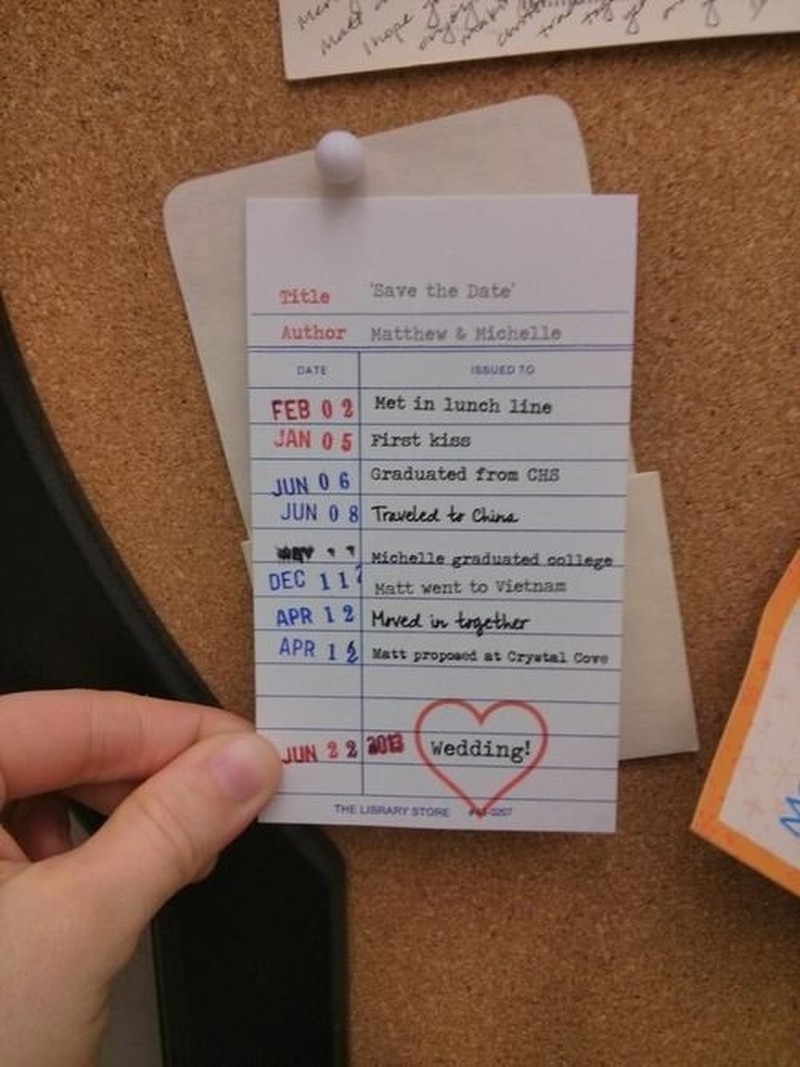 Matt
I hope
Title 'Save the Date'
Author Matthew & Michelle
DATE ISSUED TO
FEB 02 Met in lunch line
JAN 05 First kiss
JUN 06 Graduated from CHS
JUN 08 Traveled to China
MAY 11 Michelle graduated college
DEC 11 Matt went to Vietnam
APR 12 Moved in together
APR 12 Matt proposed at Crystal Cove
JUN 22 2013 Wedding!
THE LIBRARY STORE